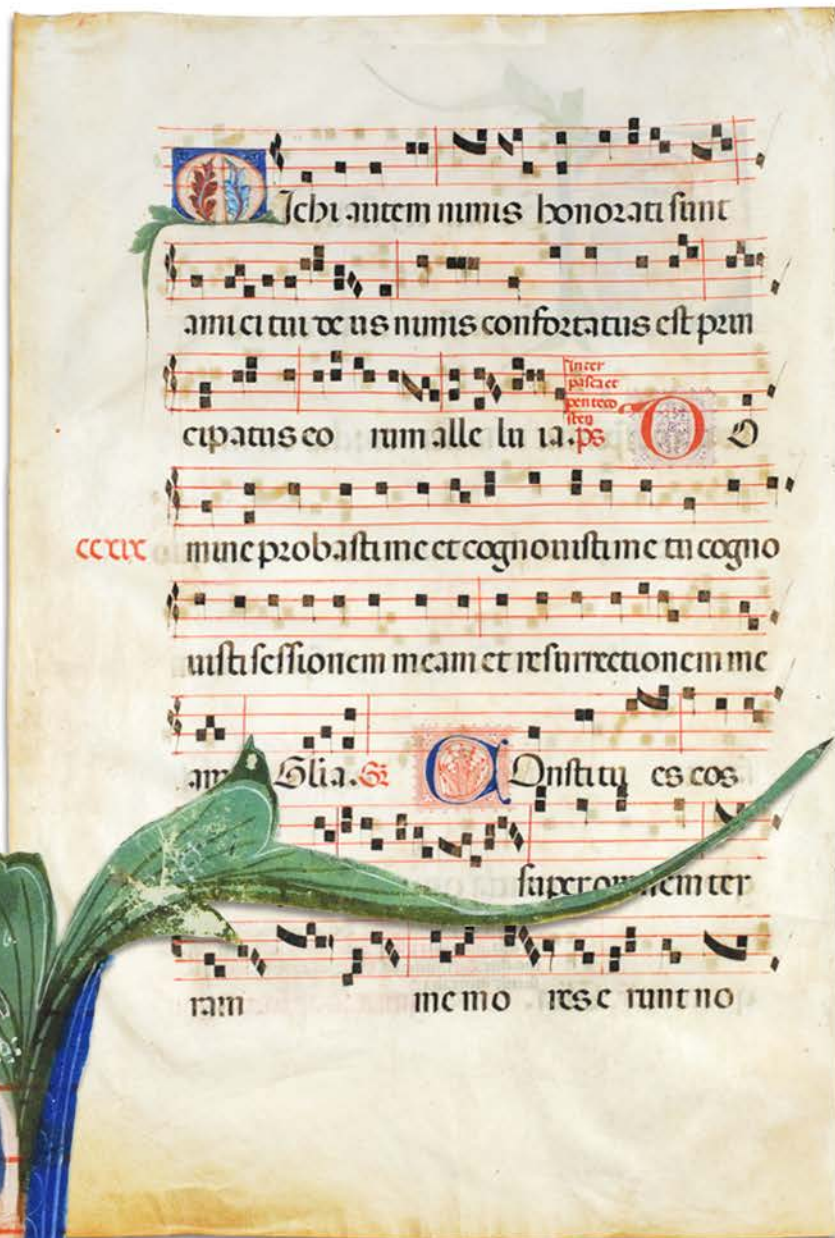 Michi autem nimis honorati sunt
amici tui deus nimis confortatus est prin
cipatus eorum alleluia. ps D O
inter
pasca et
penteco
sten
mine probasti me et cognovisti me tu cogno
ccxix
visti sessionem meam et resurrectionem me
am Glia. Gr Constitues eos
super omnem ter
ram memores erunt no